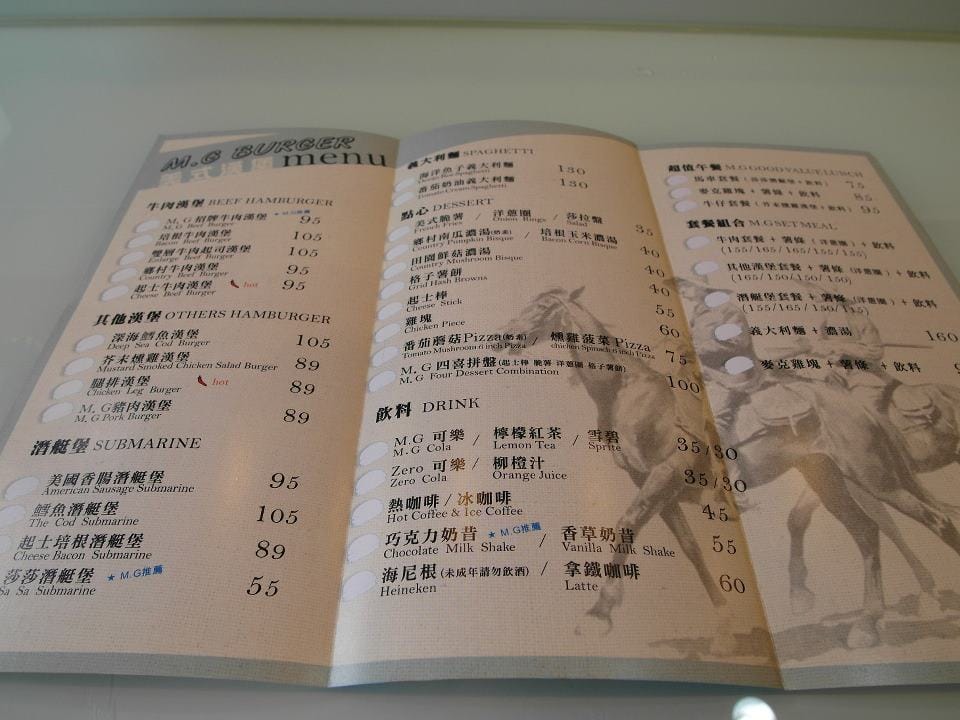 M.G BURGER
美式漢堡 menu
牛肉漢堡 BEEF HAMBURGER
M.G招牌牛肉漢堡 ★ M.G推薦 95
M.G Beef Burger
培根牛肉漢堡 105
Bacon Beef Burger
雙層牛肉起司漢堡 105
Enlarge Beef Burger
鄉村牛肉漢堡 95
Country Beef Burger
起士牛肉漢堡 hot 95
Cheese Beef Burger
其他漢堡 OTHERS HAMBURGER
深海鱈魚漢堡 105
Deep Sea Cod Burger
芥末燻雞漢堡 89
Mustard Smoked Chicken Salad Burger
腿排漢堡 hot 89
Chicken Leg Burger
M.G豬肉漢堡 89
M.G Pork Burger
潛艇堡 SUBMARINE
美國香腸潛艇堡 95
American Sausage Submarine
鱈魚潛艇堡 105
The Cod Submarine
起士培根潛艇堡 89
Cheese Bacon Submarine
莎莎潛艇堡 ★ M.G推薦 55
Sa Sa Submarine
義大利麵 SPAGHETTI
海洋魚子義大利麵 130
Ocean Roe Spaghetti
番茄奶油義大利麵 130
Tomato Cream Spaghetti
點心 DESSERT
美式脆薯 / 洋蔥圈 / 莎拉盤 35
French Fries Onion Rings Salad
鄉村南瓜濃湯(奶素) / 培根玉米濃湯 40
Country Pumpkin Bisque Bacon Corn Bisque
田園鮮菇濃湯 40
Country Mushroom Bisque
格子薯餅 40
Grid Hash Browns
起士棒 55
Cheese Stick
雞塊 60
Chicken Piece
番茄蘑菇Pizza(奶素) / 燻雞菠菜Pizza 75
Tomato Mushroom 6 inch Pizza chicken Spinach 6 inch Pizza
M.G四喜拼盤(起士棒 脆薯 洋蔥圈 格子薯餅) 100
M.G Four Dessert Combination
飲料 DRINK
M.G 可樂 / 檸檬紅茶 / 雪碧 35/30
M.G Cola Lemon Tea Sprite
Zero 可樂 / 柳橙汁 35/30
Zero Cola Orange Juice
熱咖啡 / 冰咖啡 45
Hot Coffee & Ice Coffee
巧克力奶昔 ★ M.G推薦 / 香草奶昔 55
Chocolate Milk Shake Vanilla Milk Shake
海尼根(未成年請勿飲酒) / 拿鐵咖啡 60
Heineken Latte
超值午餐 M.G GOOD VALUE LUNCH
馬車套餐(莎莎潛艇堡+飲料) 75
麥克雞塊 + 薯條 + 飲料 85
牛仔套餐(芥末燻雞漢堡+飲料) 95
套餐組合 M.G SET MEAL
牛肉套餐 + 薯條(洋蔥圈) + 飲料
(155/165/165/155/155)
其他漢堡套餐 + 薯條(洋蔥圈) + 飲料
(165/150/150/150)
潛艇堡套餐 + 薯條(洋蔥圈) + 飲料
(155/165/150/115)
義大利麵 + 濃湯 160
麥克雞塊 + 薯條 + 飲料